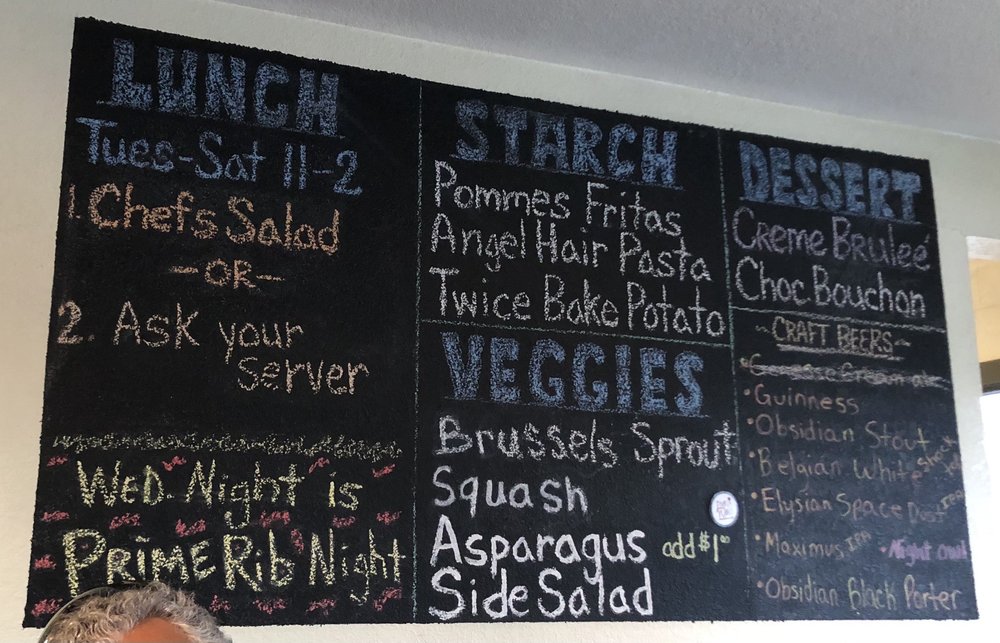 LUNCH
Tues-Sat 11-2
1. Chefs Salad
-OR-
2. Ask your
server
WED. Night is
PRIME Rib Night
STARCH
Pommes Fritas
Angel Hair Pasta
Twice Bake Potato
VEGGIES
Brussels Sprout
Squash
Asparagus add $1
Side Salad
DESSERT
Creme Bruleé
Choc Bouchon
~CRAFT BEERS~
•Guinness
•Obsidian Stout
•Belgian White
•Elysian Space Dust IPA
•Maximus IPA •Night owl
•Obsidian Black Porter